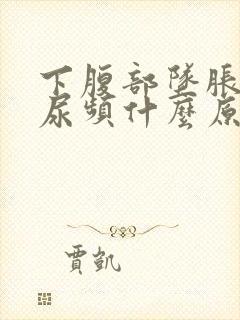 下腹部墜脹
尿頻什麼原
賈凱